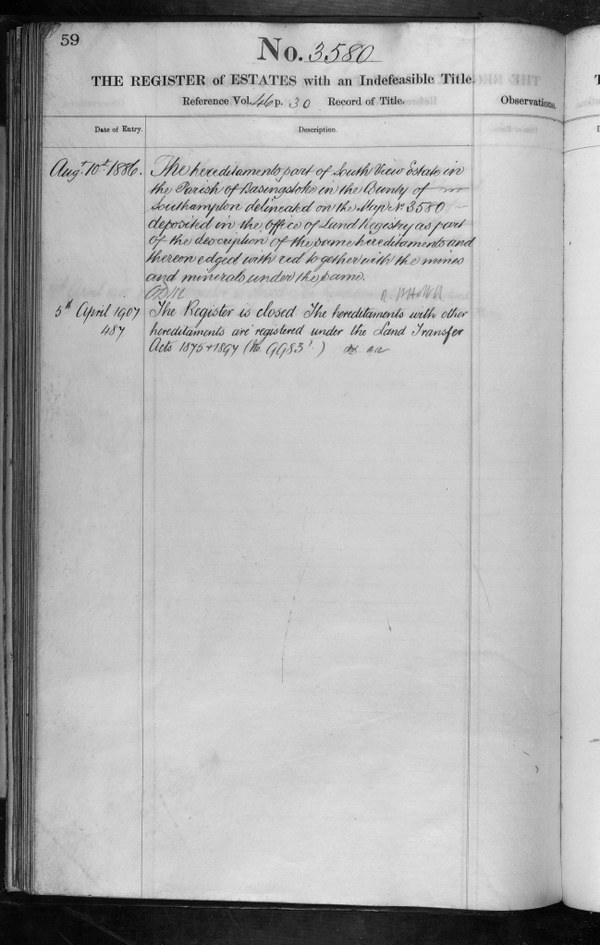 59
No. 3580
THE REGISTER of ESTATES with an Indefeasible Title.
Reference Vol. 46 p. 30 Record of Title.
Observations.
Date of Entry.
Description.
Augt 10th 1886.
The hereditaments part of South View Estate in
the Parish of Basingstoke in the County of
Southampton delineated on the Map No 3580
deposited in the Office of Land Registry as part
of the description of the same hereditaments and
thereon edged with red together with the mines
and minerals under the same.
5th April 1907
487
The Register is closed The hereditaments with other
hereditaments are registered under the Land Transfer
Acts 1875 + 1897 (No. 9983)